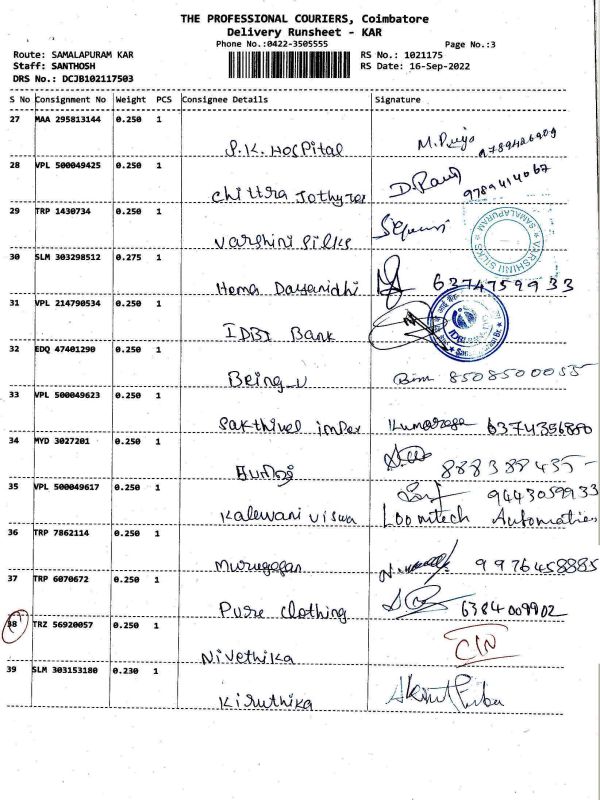 THE PROFESSIONAL COURIERS, Coimbatore
Delivery Runsheet - KAR
Phone No.:0422-3505555
Page No.:3
Route: SAMALAPURAM KAR
RS No.: 1021175
Staff: SANTHOSH
RS Date: 16-Sep-2022
DRS No.: DCJB102117503
S No Consignment No Weight PCS Consignee Details Signature
27 MAA 295813144 0.250 1
P.K. Hospital
28 VPL 500049425 0.250 1
Chittra 9789414067
29 TRP 1430734 0.250 1
Varshini silks VARSHINI SILKS SAMALAPURAM
30 SLM 303298512 0.275 1
Hema Dayanidhi 6374759933
31 VPL 214790534 0.250 1
IDBI Bank
32 EDQ 47401290 0.250 1
Being_U 8508500055
33 VPL 500049623 0.250 1
Sakthivel impex 6374356880
34 MYD 3027201 0.250 1
35 VPL 500049617 0.250 1
9443059933
Kalewani viswa Loomtech Automaties
36 TRP 7862114 0.250 1
Murugesan 9976458885
37 TRP 6070672 0.250 1
Pure clothing 6384009902
38 TRZ 56920057 0.250 1
Nivethika
39 SLM 303153180 0.230 1
Kiruthika